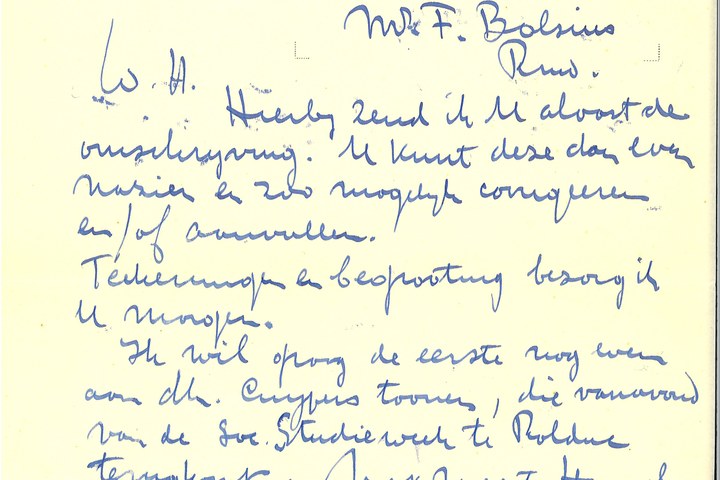 Mr F. Bolsius
Rmd.
W. H.
Hierbij zend ik U alvast de
omschrijving. U kunt deze dan even
nazien en zoo mogelijk corrigeeren
en/of aanvullen.
Teekeningen en begrooting bezorg ik
U morgen.
Ik wil graag de eerste nog even
aan dh. Cuypers toonen, die vanavond
van de Soc. Studieweek te Rolduc